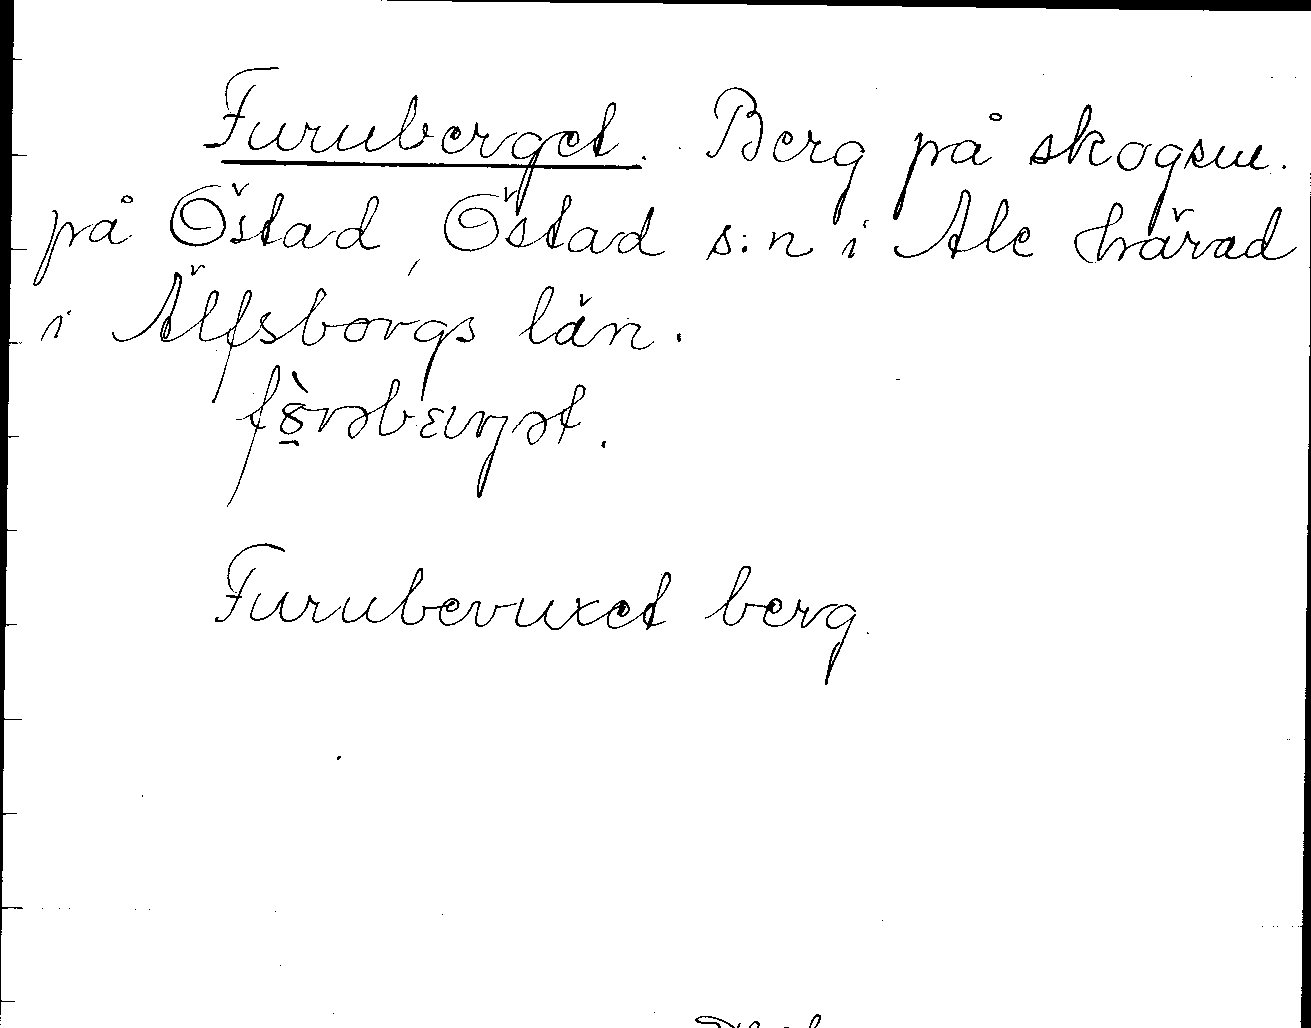 Furuberget. Berg på skogsm.
på Östad, Östad s:n i Ale härad
i Älfsborgs län.
Furubevuxet berg.